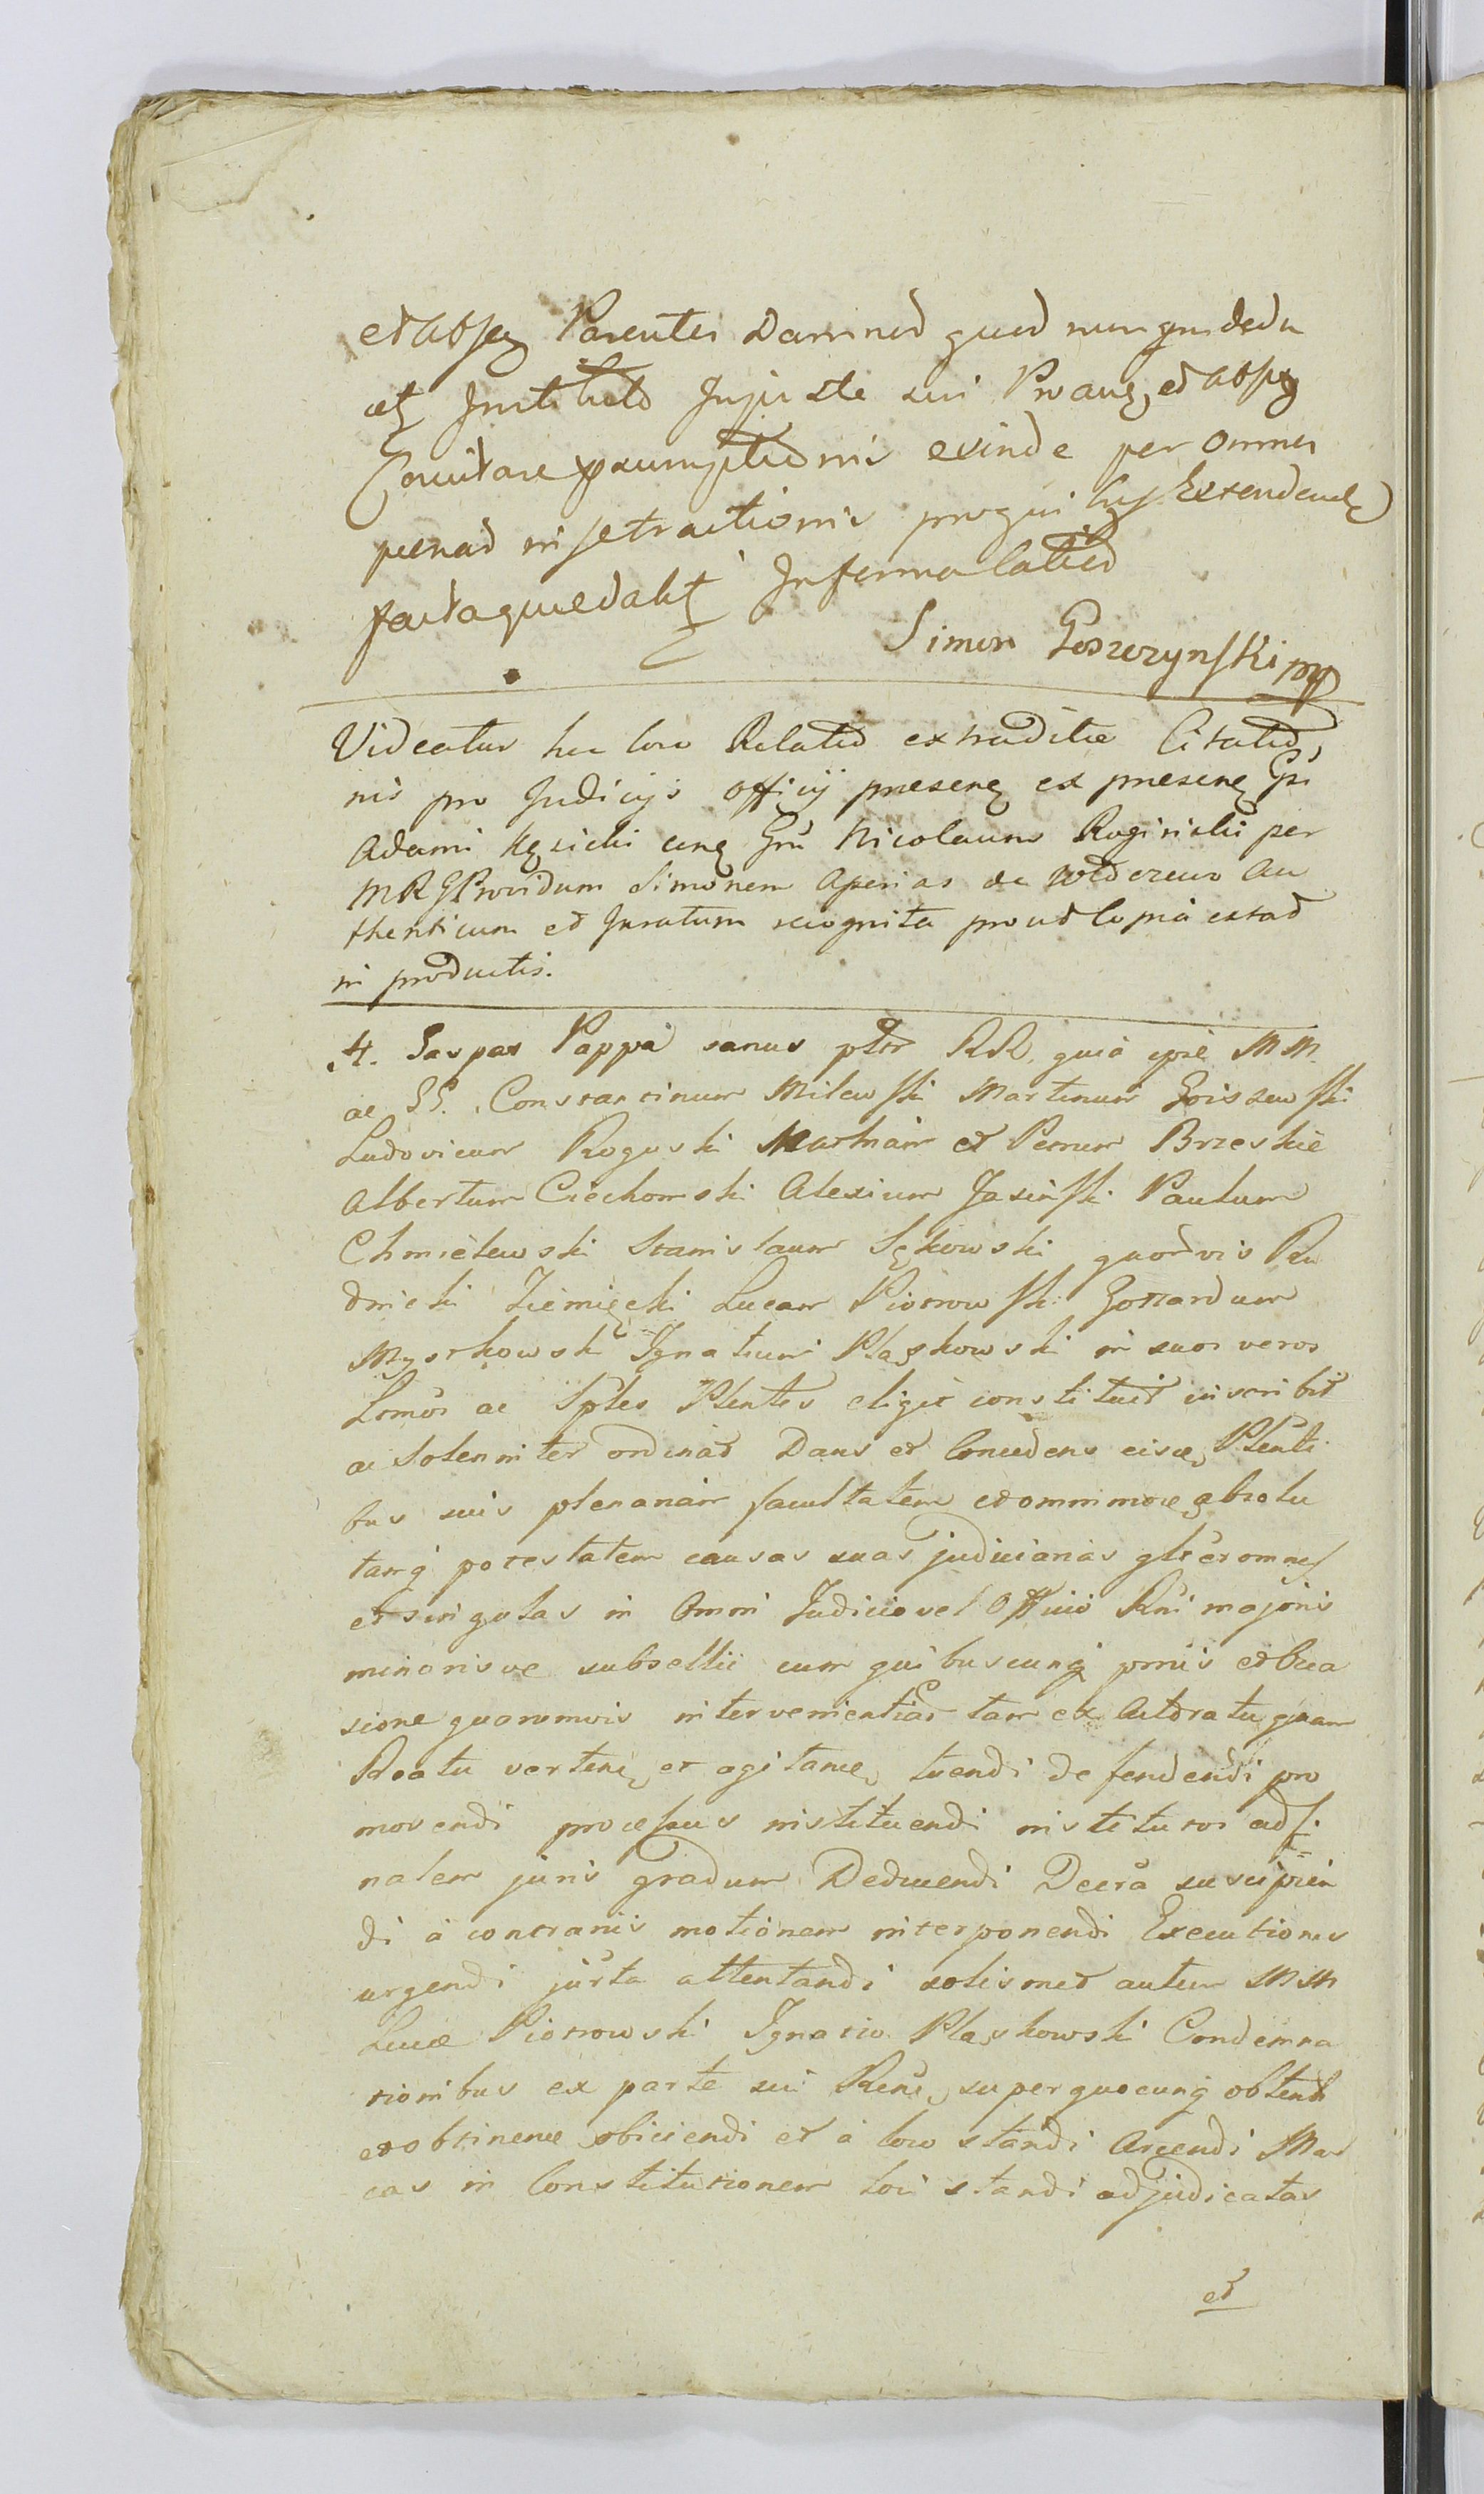 Parentes Damned quod nunquam dedu
Injuste sui et absq
exinde per omnes
pro qui
Simon Goszczynski mp
Videatur hoc loco Relatio extraditæ Citatio,
nis pro Judicijs officij præsen ex præsen Gsi
Adami Kęsicki cum Gsu Nicolaum Roginski per
MRG Providum Simonem Aperias de Au
thenticum et Juratum recognita prout Copia extat
in productis.
4. Gaspar Pappa sanus ptbr RR. quia ipse MM.
ac GG. Constantinum Milewski Martinum Goiszewski
Ludovicum Roguski Mathiam et Petrum Brzeskie
Albertum Ciechomski Alexium Jasinski Paulum
Chmielewski Stanislaum Sękowski quorvis Ru
dnicki Ziemięcki Lucam Piotrowski Gottardum
Myszkowski Ignatium Plaskowski in suos veros
Lrmos ac Sples Plentes eligit constituit inscribit
ac Solenniter ordinat Dans et Concedens eisd, Plenti
bus suis plenariam facultatem et omnimodae absolu
tamq potestatem causas suas judiciarias gltr et omnes
et singulas in Omni Judicio vel Officio Rni majoris
minorisve subsellii cum quibuscunq prnis et occa
sione quorumvis intervenientiar tam ex Actoratu quam
Reatu verten, et agitan, tuendi defendendi pro
movendi processus instituendi institutos ad fi
nalem juris gradum Deducendi Decra suscipien
di a contrariis motionem interponendi Executiones
urgendi juxta attentandi solismet autem MM
Lucæ Piotrowski Ignatio Plaskowski Condemna
tionibus ex parte sui Ren, super quocunq obtent
et obtinen obiiciendi et a loco standi Arcendi Mar
cas in Constitutionem loci standi adjudicatas
et